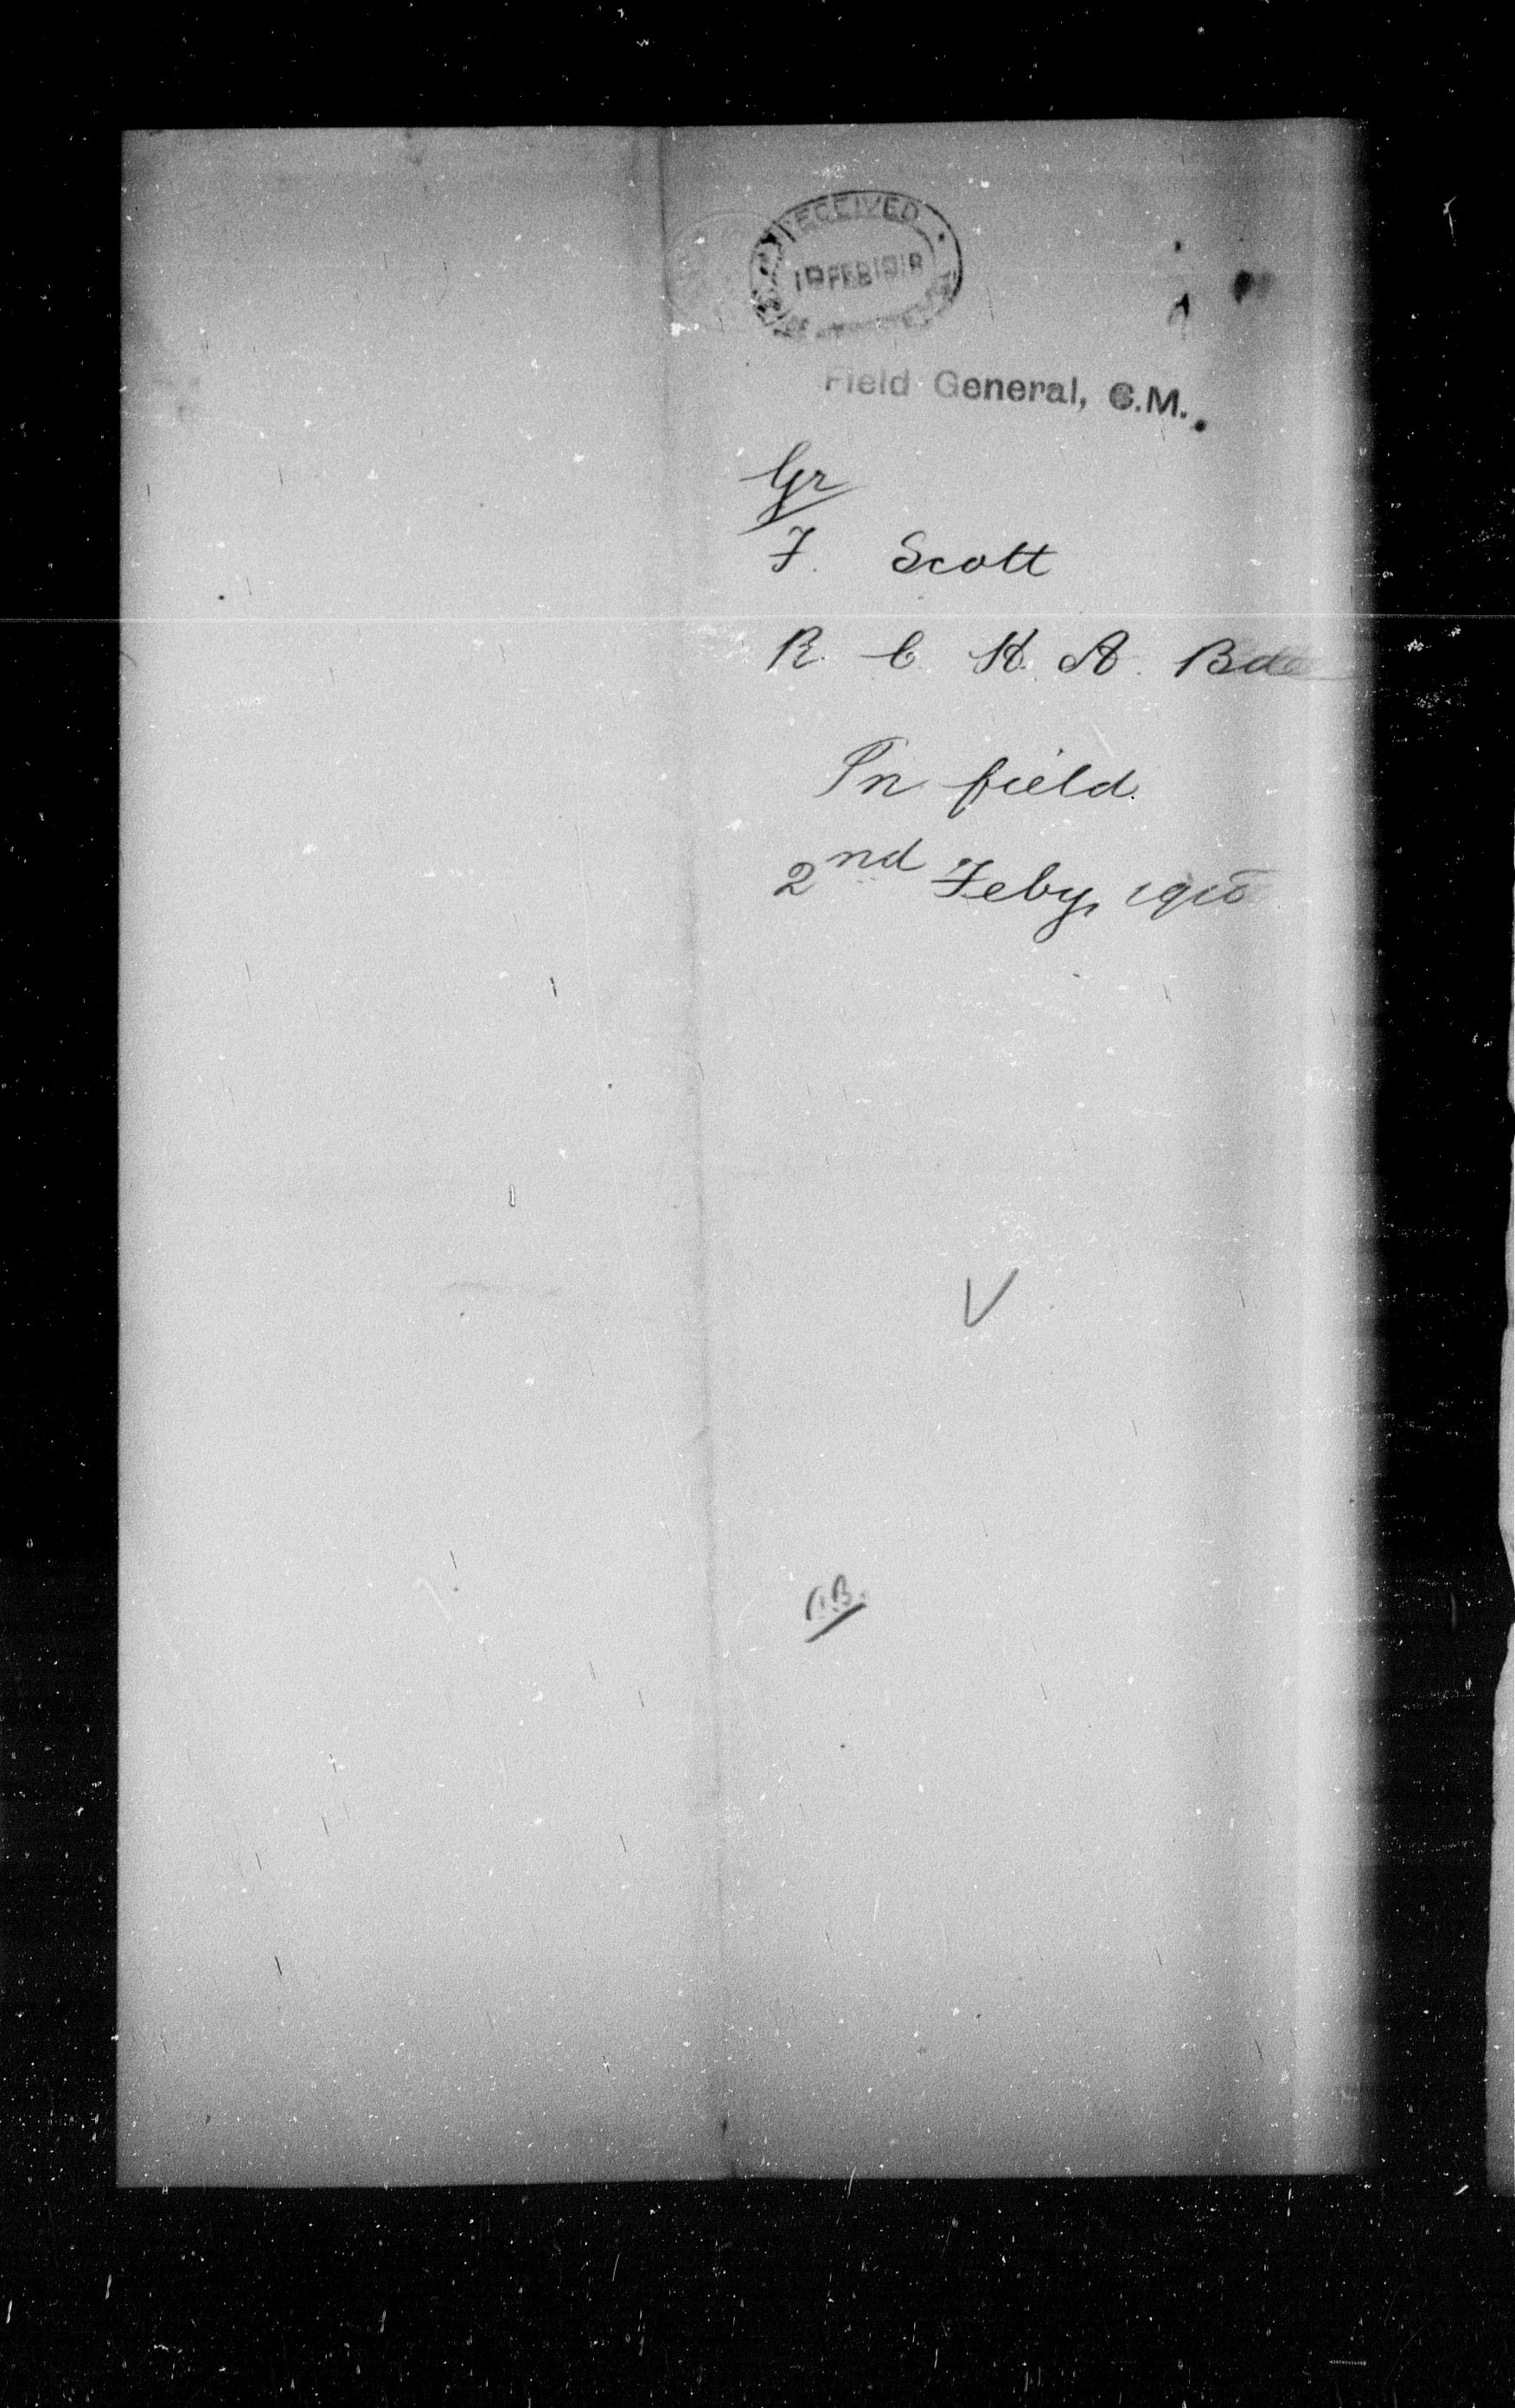 RECEIVED
19 FEB 1918
Field General, C.M.
Gr
F. Scott
R. C. H. A. Bde
In field.
2nd Feby, 1918
V